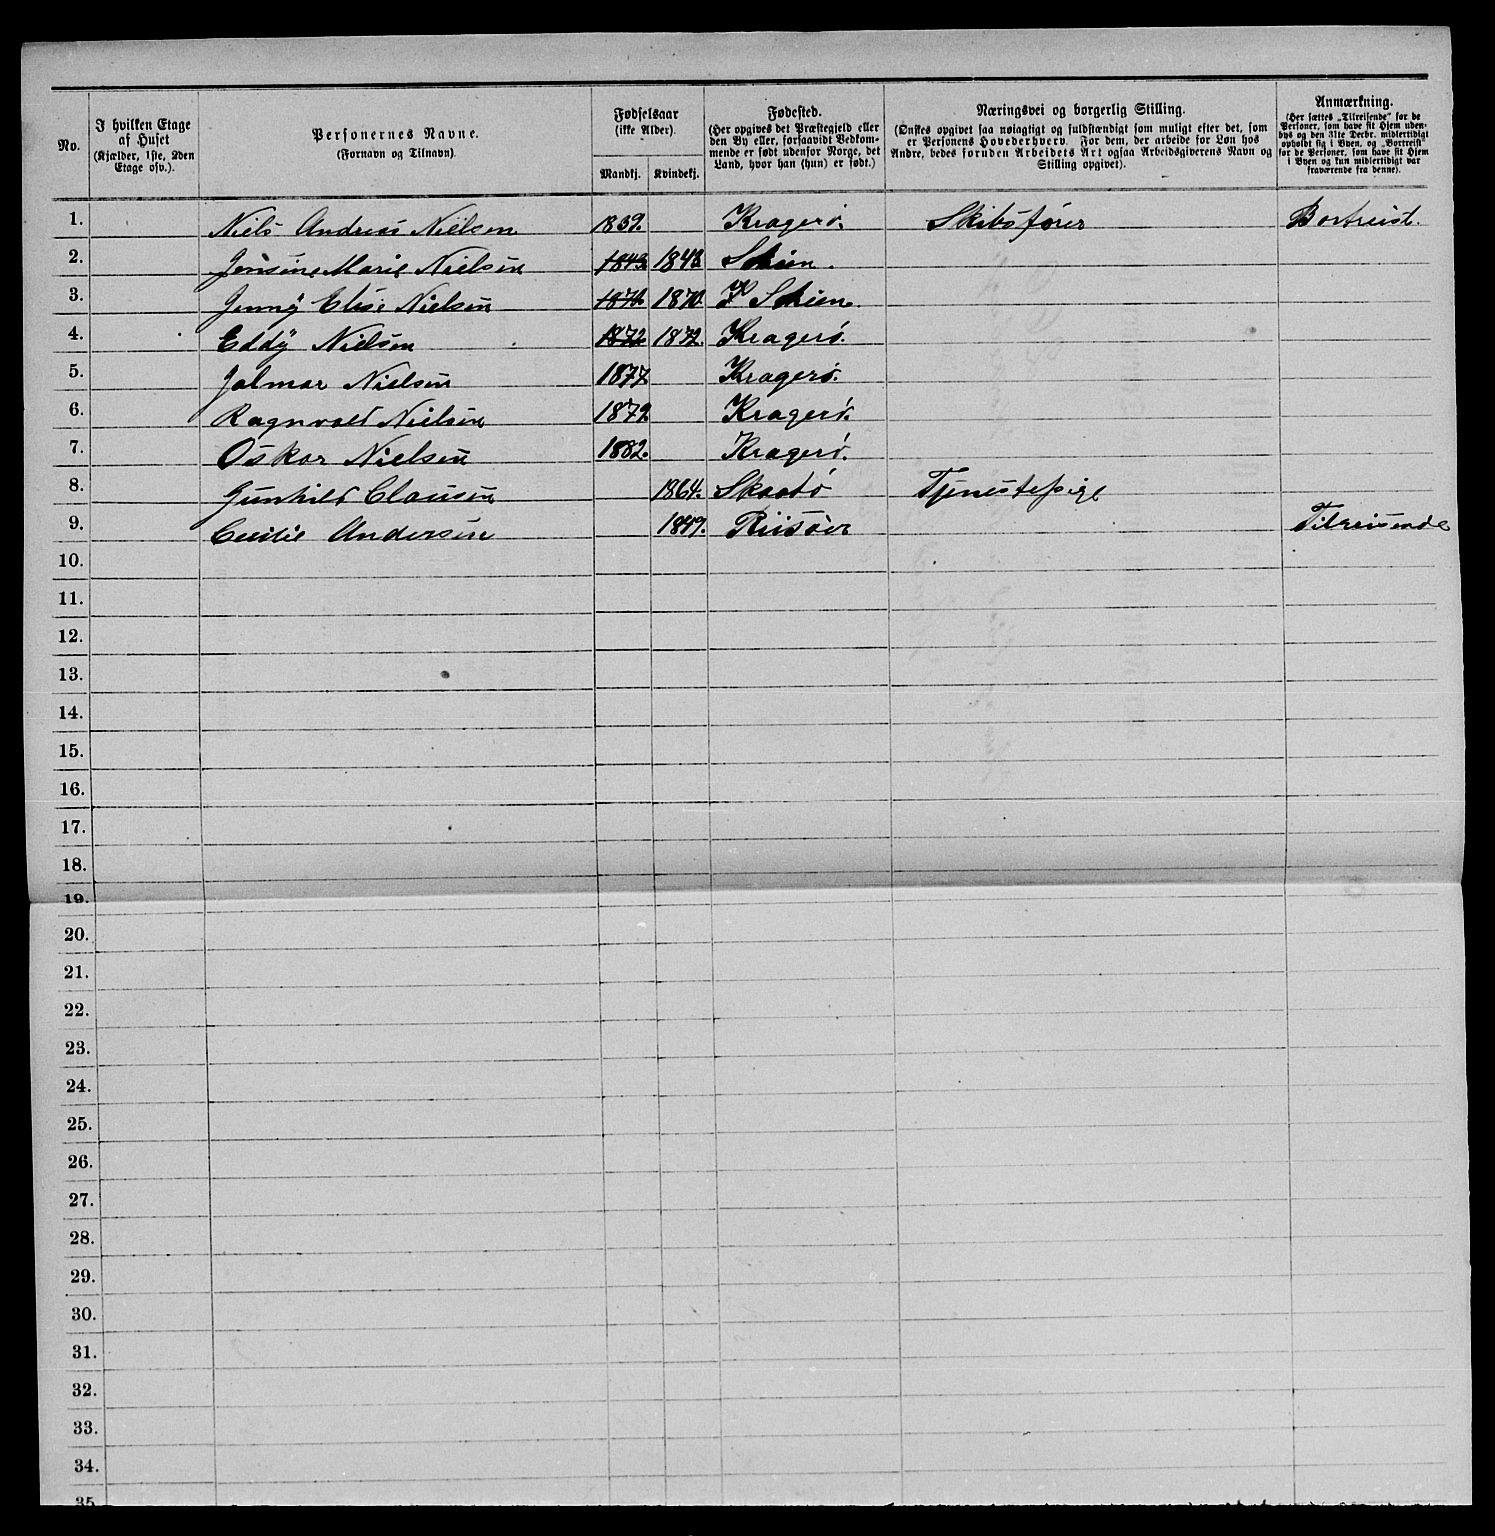 No.
I hvilken Etage
af Huset
(Kjælder, 1ste, 2den
Etage osv.).
Personernes Navne.
(Fornavn og Tilnavn).
Fødselsaar
(ikke Alder).
Mandkj. Kvindekj.
Fødested.
(Her opgives det Præstegjeld eller
den By eller, forsaavidt Vedkom-
mende er født udenfor Norge, det
Land, hvor han (hun) er født.)
Næringsvei og borgerlig Stilling.
(Ønskes opgivet saa nøiagtigt og fuldstændigt som muligt efter det, som
er Personens Hovederhverv. For dem, der arbeide for Løn hos
Andre, bedes foruden Arbeidets Art ogsaa Arbeidsgiverens Navn og
Stilling opgivet).
Anmærkning.
(Her sættes „Tilreisende" for de
Personer, som have sit Hjem uden-
bys og den 31te Decbr. midlertidigt
opholdt sig i Byen, og „Bortreist"
for de Personer, som have sit Hjem
i Byen og kun midlertidigt var
fraværende fra denne).
1. Niels Andreas Nielsen 1839. Kragerø. Skibsfører Bortreist.
2. Jensine Marie Nielsen 1843 1843 Skien.
3. Jenny Elise Nielsen 1870 1870 Skien.
4. Eddy Nielsen 1872 1872. Kragerø.
5. Jalmar Nielsen 1877 Kragerø.
6. Ragnvald Nielsen 1879 Kragerø.
7. Oskar Nielsen 1882. Kragerø.
8. Gunhild Clausen 1864. Skaatø Tjenestepige
9. Cecilie Andersen 1849. Riisøer Tilreisende
10.
11.
12.
13.
14.
15.
16.
17.
18.
19.
20.
21.
22.
23.
24.
25.
26.
27.
28.
29.
30.
31.
32.
33.
34.
35